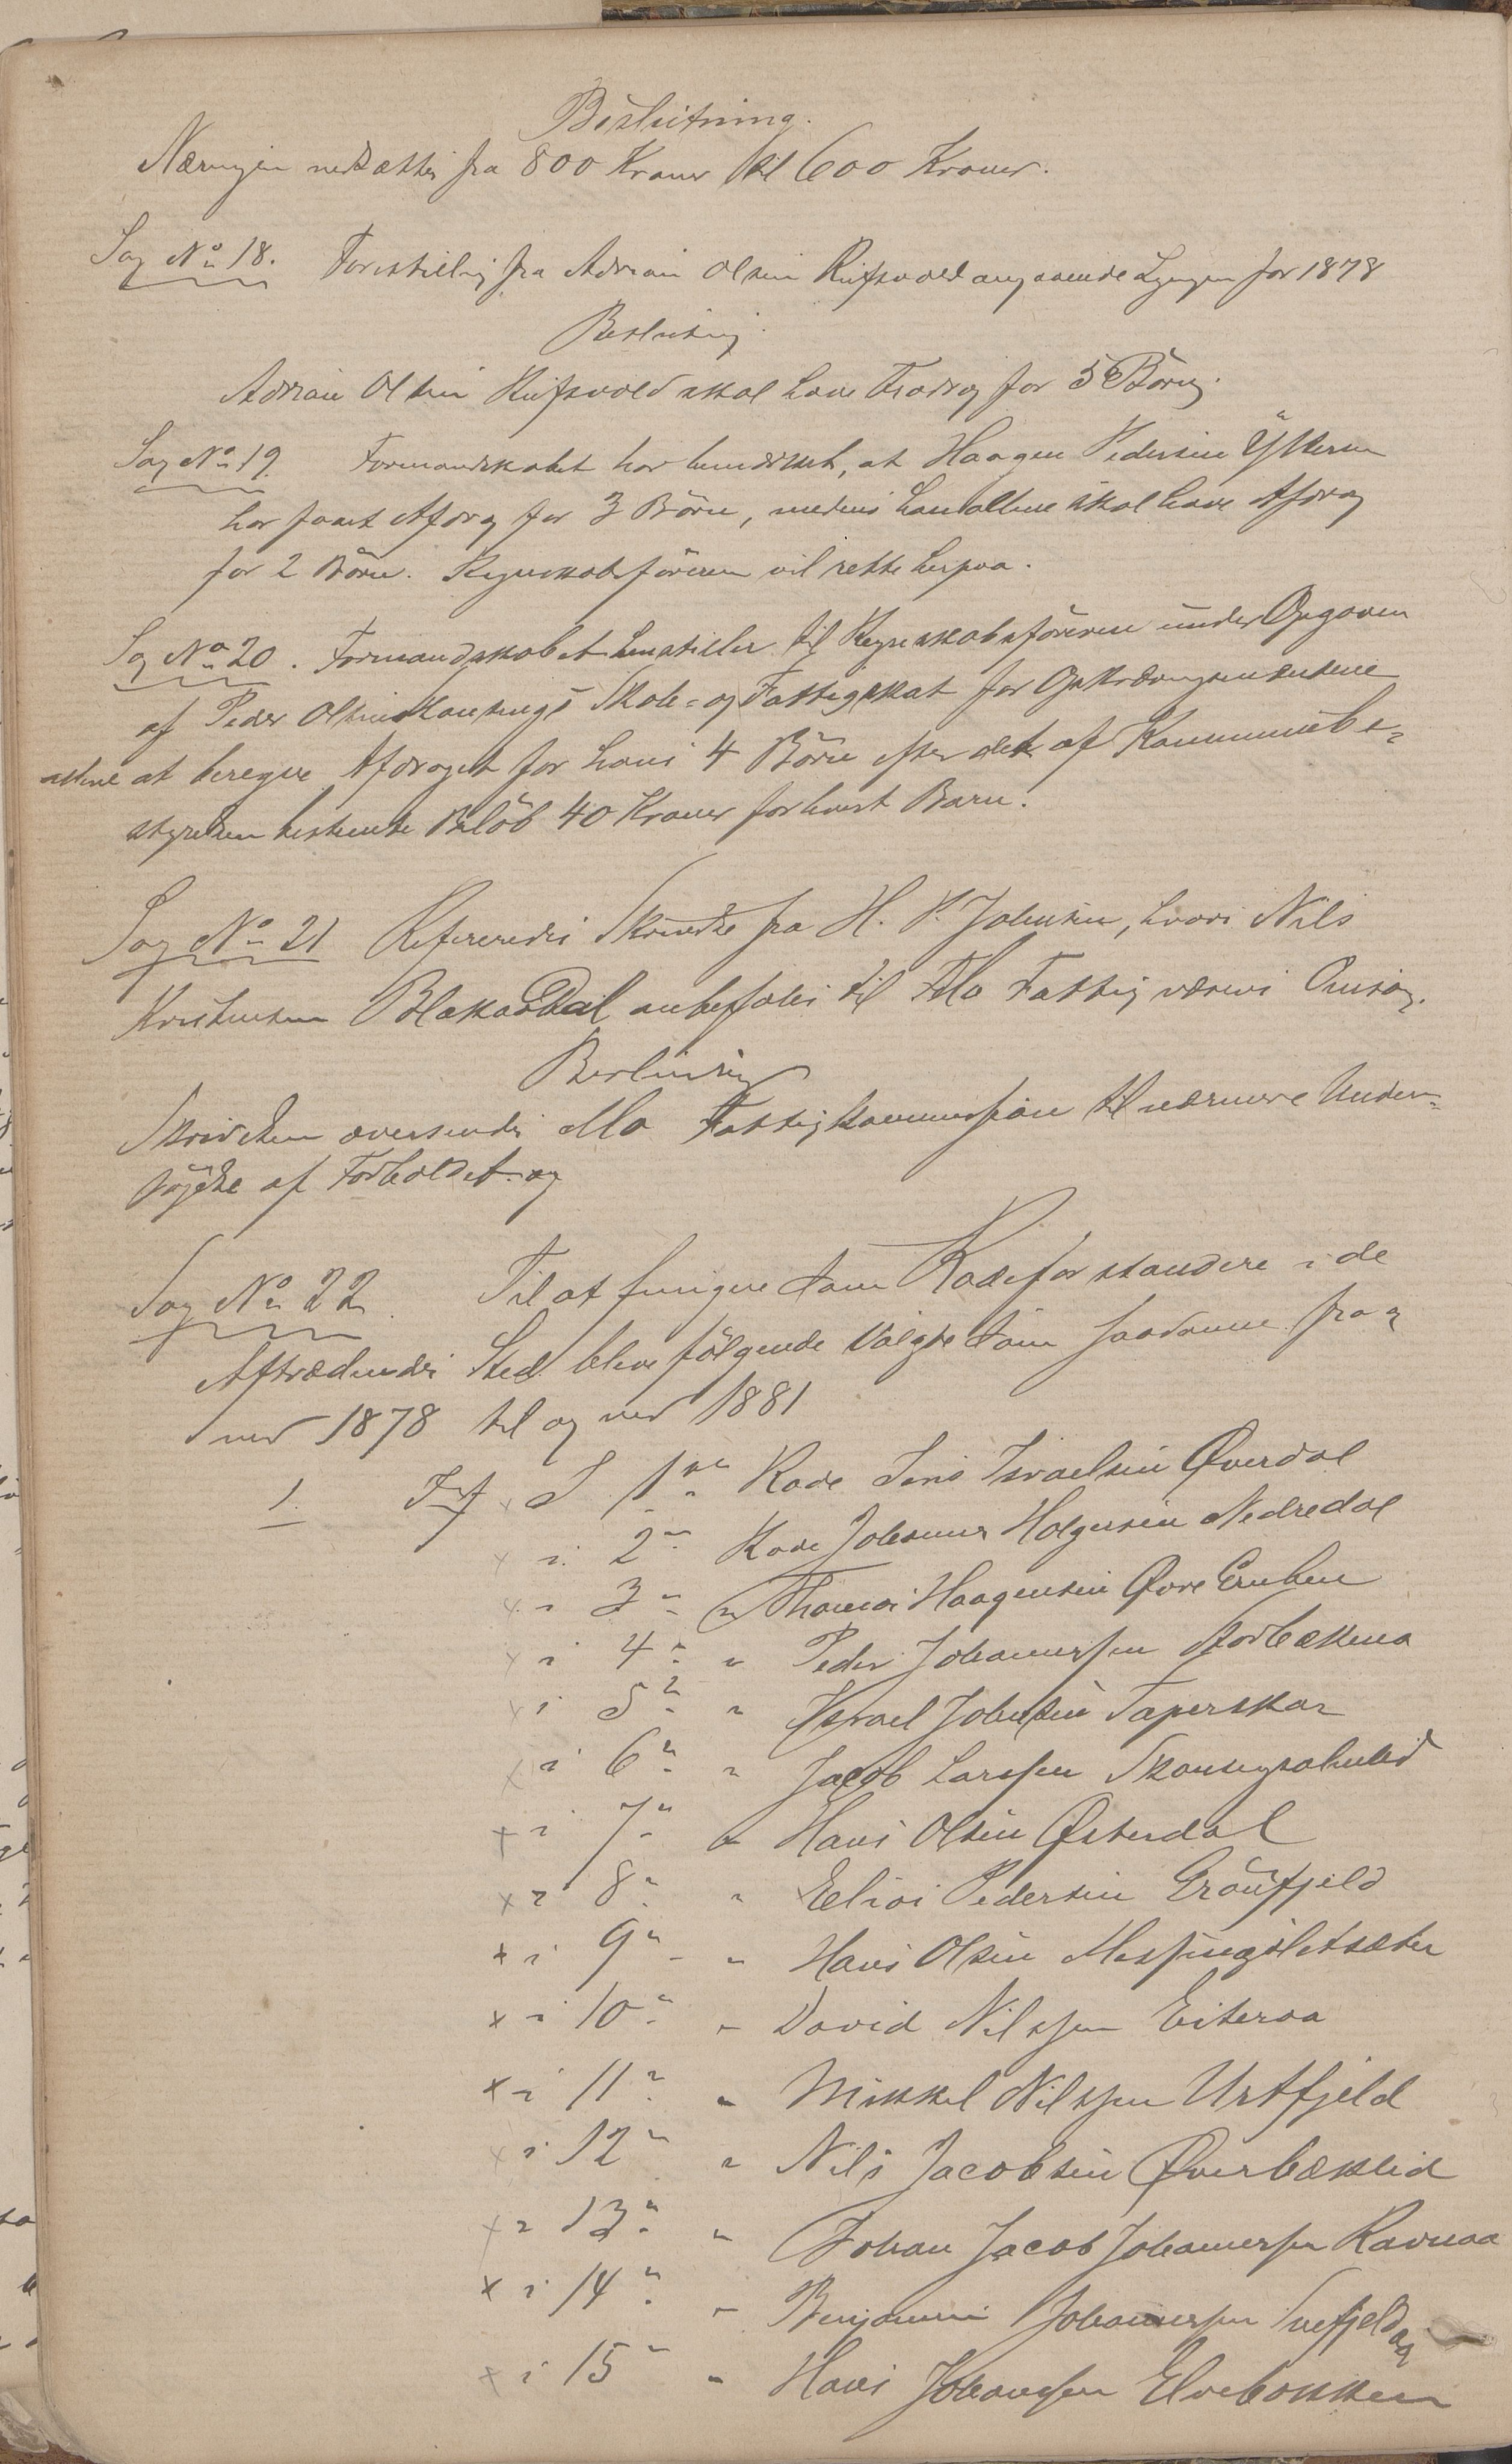 Beslutning.
Næringen nedsættes fra 800 Kroner til 600 Kroner.
Sag No 18. Forestilling fra Adrian Olsen Rufsvold angaaende Ligningen for 1878
Beslutning.
Adrian Olsen Rufsvold skal have Fradrag for 5 Børn.
Sag No 19. Formandskabet har bemærket, at Haagen Pedersen Ytteren
har faaet Afdrag for 3 Børn, medens han alene skal have Afdrag
for 2 Børn. Regnskabsføreren vil rette herpaa.
Sag No 20. Formandskabet henstiller til Regnskabsføreren under Opgaven
af Peder Olsen Skole- og Fattigskat for
at beregne Afdraget for hans 4 Børn efter det af Kommunebe-
styrelsen bestemte Beløb 40 Kroner for hvert Barn.
Sag No 21 Refereredes Skrivelse fra H. P. Johnsen, hvori Nils
Kristensen Blakaadal anbefales til Mo Fattigvæsens Omsorg.
Beslutning
Skrivelsen oversendes Mo Fattigkommission til nærmere Under-
søgelse af Forholdet.
Sag No 22. Til at fungere som Rodeforstandere i de
Aftrædendes Sted bleve følgende valgte som saadanne fra og
med 1878 til og med 1881
1. x I 1ste Rode Jens Israelsen Øverdal
x i 2" Rode Johannes Holgersen Nedredal
x i 3" " Thomas Haagensen Øvre Gruben
x i 4" " Peder Johannessen Storbækmo
x i 5" " Israel Johnsen Tapperskar
x i 6" " Jacob Larssen
x i 7" " Hans Olsen Østerdal
x i 8" " Elias Pedersen Grønfjeld
x i 9" " Hans Olsen Messingsletsæter
x i 10" " David Nilssen Eiteraa
x i 11" " Mikkel Nilssen Urtfjeld
x i 12" " Nils Jacobsen Øverbæklid
x i 13" " Johan Jacob Johannessen Ravnaa
x i 14" " Benjamin Johannessen Snefjeld og
x i 15" " Hans Johansen Elvebakken